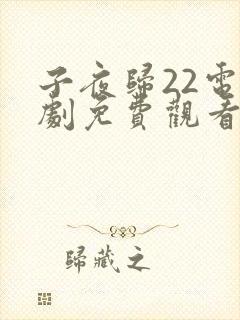 子夜歸22電
劇免費觀看
歸藏之